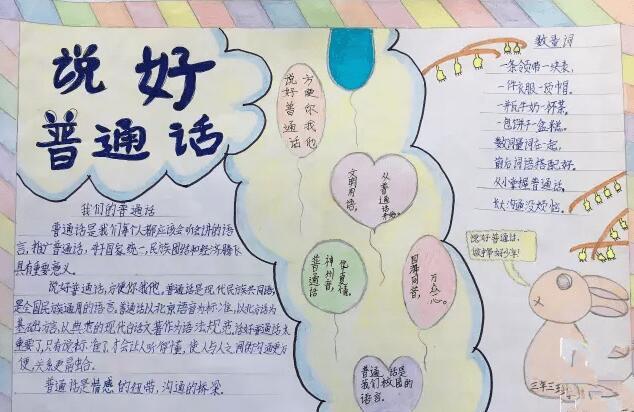 说好
普通话
我们的普通话
普通话是我们每个人都应该会听会讲的语
言,推广普通话,利于国家统一,民族团结和经济腾飞
具有重要意义。
说好普通话,方便你我他。普通话是现代民族共同语,
是全国民族通用的语言。普通话以北京语音为标准,以北方话为
基础方言,以典范的现代白话文著作为语法规范。说好普通话太
重要了,只有说标准了,才会让人听得懂,使人与人之间的沟通更方
便,关系更融洽。
普通话是情感的纽带,沟通的桥梁。
方便你我他
说好普通话
文明用语,
从普通话开始。
华夏情。
神州音,
普通话
国音,
万众心。
普通话是
我们校园的
语言.
数量词
一条领带一块表,
一件衣服一顶帽。
一瓶牛奶一杯茶。
一包饼干一盒糕。
数词量词在一起,
前后词语搭配好。
从小掌握普通话,
长大沟通没烦恼。
说好普通话,
做好少年!
三年三班